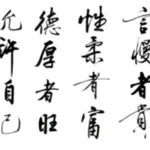 言慢者貴
性柔者富
德厚者旺
允許自己